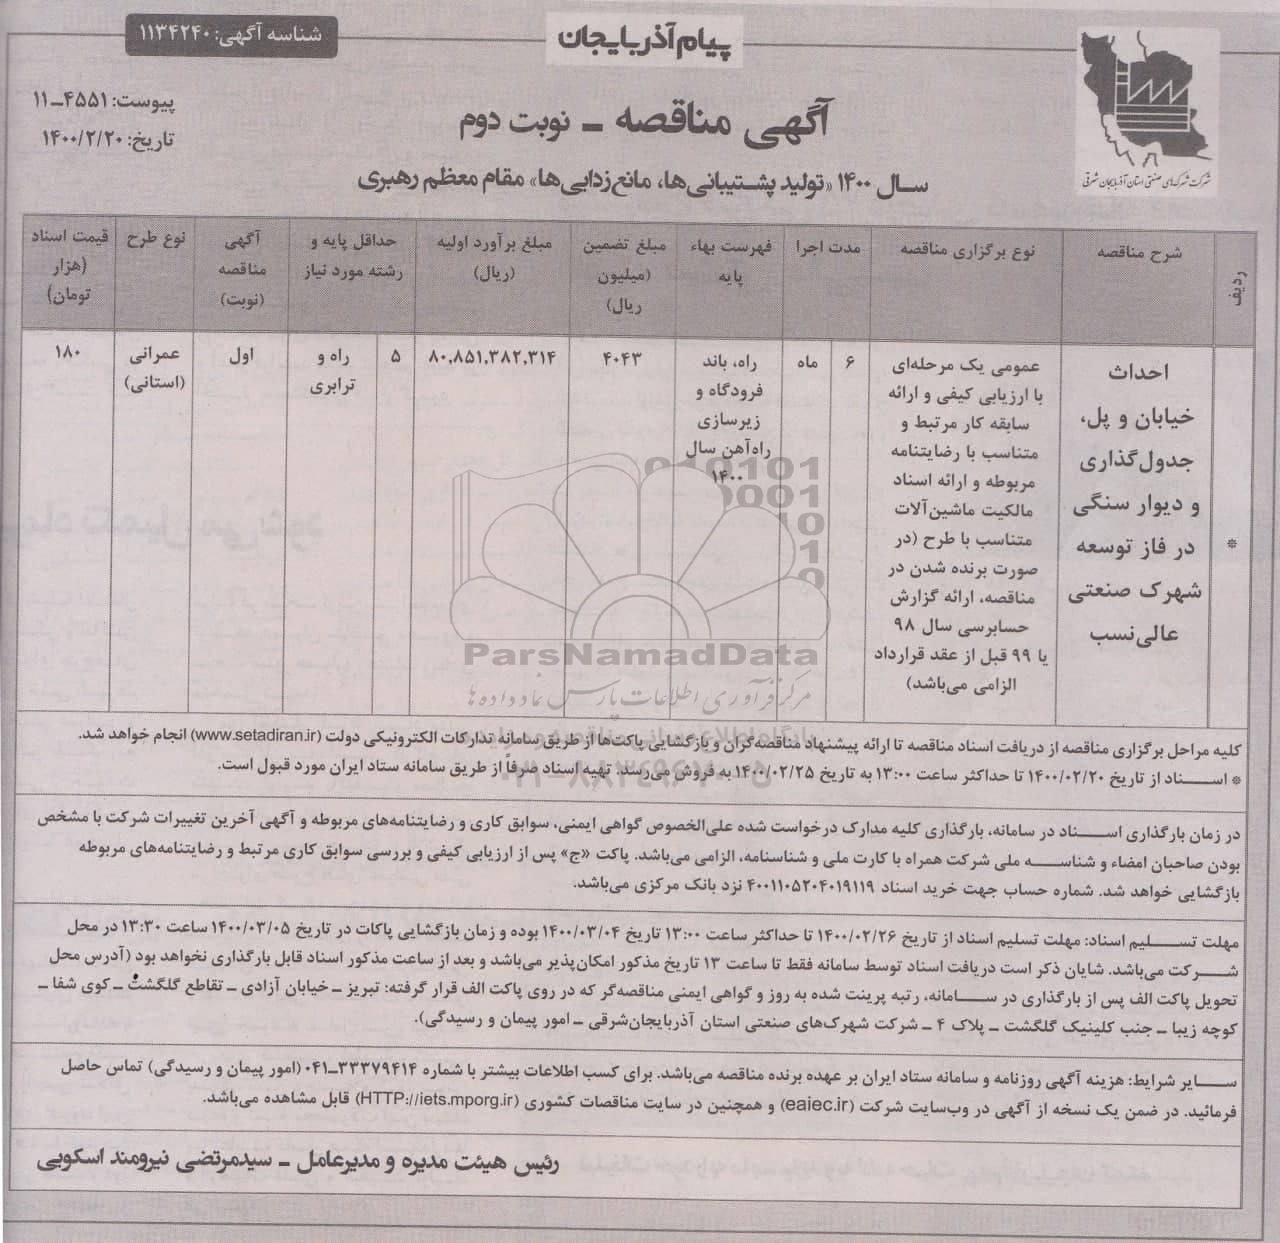 شناسه آگهی: ۱۱۳۴۲۴۰
پیام آذربایجان
پیوست: ۴۵۵۱ــ۱۱
تاریخ: ۱۴۰۰/۲/۲۰
شرکت شهرک‌های صنعتی استان آذربایجان شرقی
آگهی مناقصه ــ نوبت دوم
سال ۱۴۰۰ «تولید پشتیبانی‌ها، مانع‌زدایی‌ها» مقام معظم رهبری
ردیف
شرح مناقصه
نوع برگزاری مناقصه
مدت اجرا
فهرست بهاء
پایه
مبلغ تضمین
(میلیون
ریال)
مبلغ برآورد اولیه
(ریال)
حداقل پایه و
رشته مورد نیاز
آگهی
مناقصه
(نوبت)
نوع طرح
قیمت اسناد
(هزار
تومان)
*
احداث
خیابان و پل،
جدول‌گذاری
و دیوار سنگی
در فاز توسعه
شهرک صنعتی
عالی‌نسب
عمومی یک مرحله‌ای
با ارزیابی کیفی و ارائه
سابقه کار مرتبط و
متناسب با رضایتنامه
مربوطه و ارائه اسناد
مالکیت ماشین‌آلات
متناسب با طرح (در
صورت برنده شدن در
مناقصه، ارائه گزارش
حسابرسی سال ۹۸
یا ۹۹ قبل از عقد قرارداد
الزامی می‌باشد)
۶
ماه
راه، باند
فرودگاه و
زیرسازی
راه‌آهن سال
۱۴۰۰
۴۰۴۳
۸۰,۸۵۱,۳۸۲,۳۱۴
۵
راه و
ترابری
اول
عمرانی
(استانی)
۱۸۰
ParsNamadData
مرکز فرآوری اطلاعات پارس نماد داده‌ها
کلیه مراحل برگزاری مناقصه از دریافت اسناد مناقصه تا ارائه پیشنهاد مناقصه‌گران و بازگشایی پاکت‌ها از طریق سامانه تدارکات الکترونیکی دولت (www.setadiran.ir) انجام خواهد شد.
* اسناد از تاریخ ۱۴۰۰/۰۲/۲۰ تا حداکثر ساعت ۱۳:۰۰ به تاریخ ۱۴۰۰/۰۲/۲۵ به فروش می‌رسد. تهیه اسناد صرفاً از طریق سامانه ستاد ایران مورد قبول است.
در زمان بارگذاری اسناد در سامانه، بارگذاری کلیه مدارک درخواست شده علی‌الخصوص گواهی ایمنی، سوابق کاری و رضایتنامه‌های مربوطه و آگهی آخرین تغییرات شرکت با مشخص
بودن صاحبان امضاء و شناسه ملی شرکت همراه با کارت ملی و شناسنامه، الزامی می‌باشد. پاکت «ج» پس از ارزیابی کیفی و بررسی سوابق کاری مرتبط و رضایتنامه‌های مربوطه
بازگشایی خواهد شد. شماره حساب جهت خرید اسناد ۴۰۰۱۱۰۵۲۰۴۰۱۹۱۱۹ نزد بانک مرکزی می‌باشد.
مهلت تسلیم اسناد: مهلت تسلیم اسناد از تاریخ ۱۴۰۰/۰۲/۲۶ تا حداکثر ساعت ۱۳:۰۰ تاریخ ۱۴۰۰/۰۳/۰۴ بوده و زمان بازگشایی پاکات در تاریخ ۱۴۰۰/۰۳/۰۵ ساعت ۱۳:۳۰ در محل
شرکت می‌باشد. شایان ذکر است دریافت اسناد توسط سامانه فقط تا ساعت ۱۳ تاریخ مذکور امکان‌پذیر می‌باشد و بعد از ساعت مذکور اسناد قابل بارگذاری نخواهد بود (آدرس محل
تحویل پاکت الف پس از بارگذاری در سامانه، رتبه پرینت شده به روز و گواهی ایمنی مناقصه‌گر که در روی پاکت الف قرار گرفته: تبریز ــ خیابان آزادی ــ تقاطع گلگشت ــ کوی شفا ــ
کوچه زیبا ــ جنب کلینیک گلگشت ــ پلاک ۴ ــ شرکت شهرک‌های صنعتی استان آذربایجان‌شرقی ــ امور پیمان و رسیدگی).
سایر شرایط: هزینه آگهی روزنامه و سامانه ستاد ایران بر عهده برنده مناقصه می‌باشد. برای کسب اطلاعات بیشتر با شماره ۳۳۳۷۹۴۱۴ــ۰۴۱ (امور پیمان و رسیدگی) تماس حاصل
فرمائید. در ضمن یک نسخه از آگهی در وب‌سایت شرکت (eaiec.ir) و همچنین در سایت مناقصات کشوری (HTTP://iets.mporg.ir) قابل مشاهده می‌باشد.
رئیس هیئت مدیره و مدیرعامل ــ سیدمرتضی نیرومند اسکویی